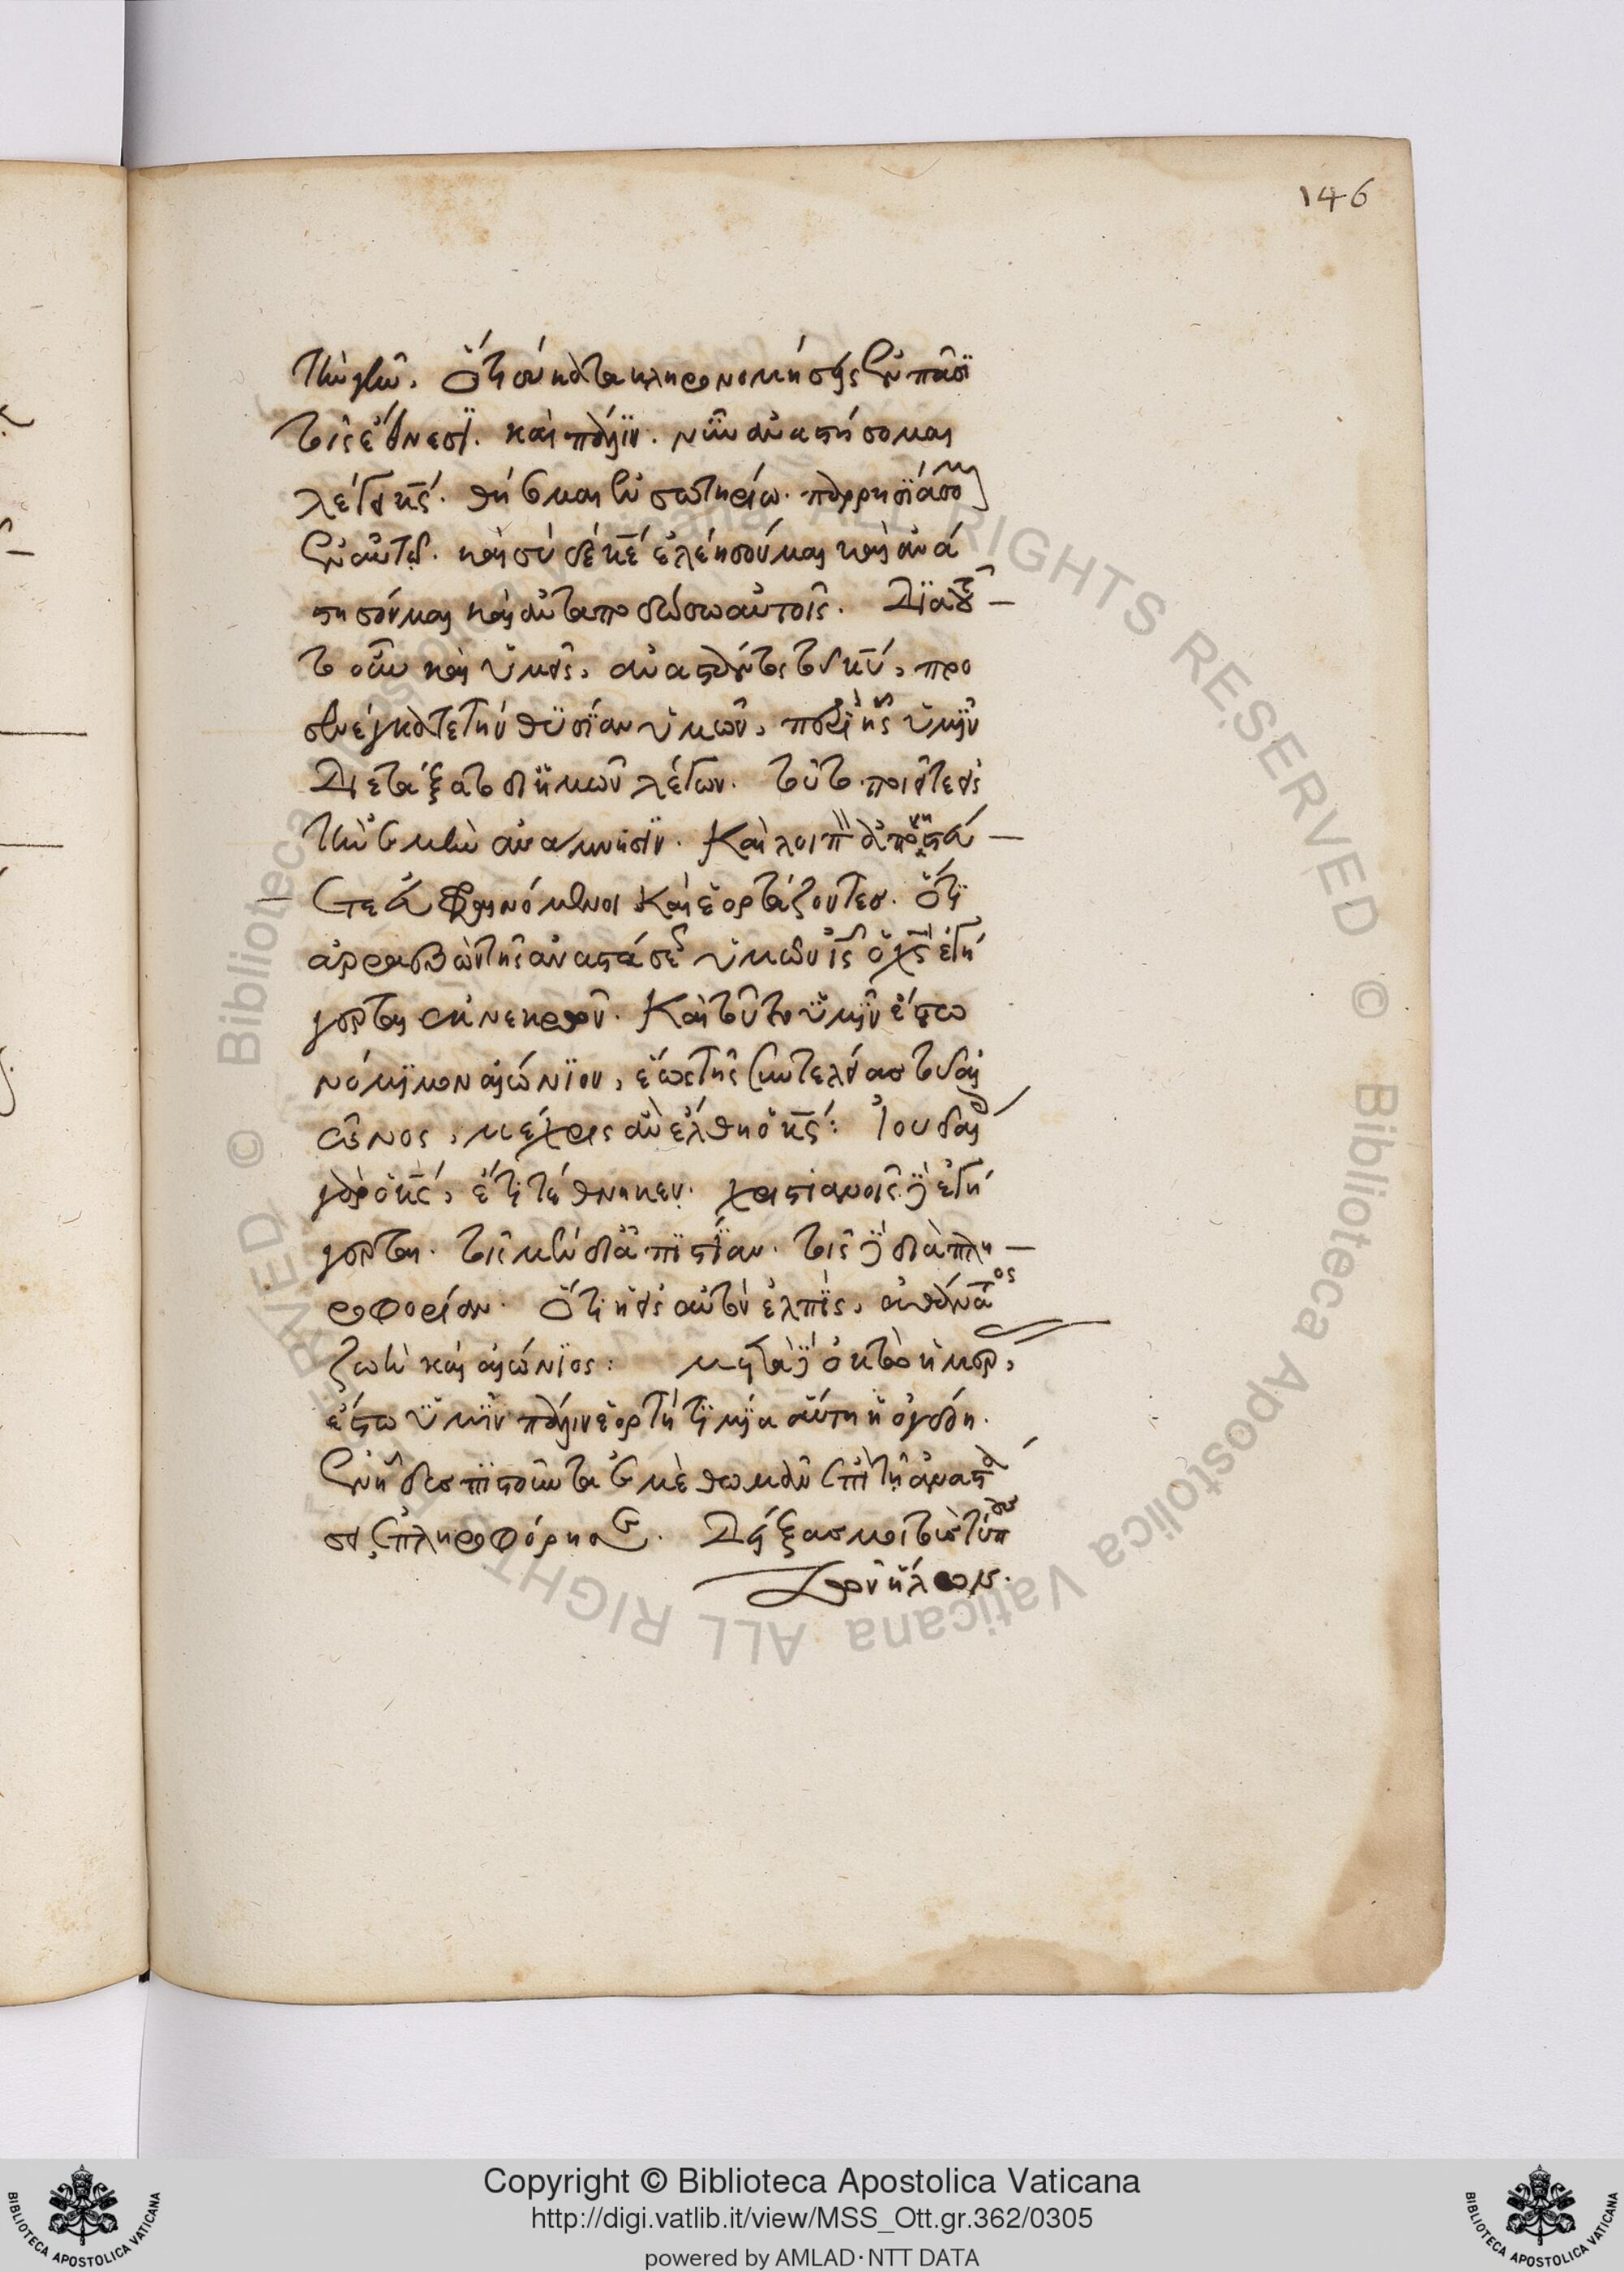 146
τὴν γῆν. Ὅτι σὺ κατακληρονομήσεις ἐν πᾶσι
τοῖς ἔθνεσι. καὶ πάλιν. νῦν ἀναστήσομαι
λέγει κς. θήσομαι ἐν σωτηρίω. παρρησιάσομαι
ἐν αὐτῶ. καὶ σὺ δὲ κε ἐλέησόν με καὶ ἀνά
στησόν με καὶ ἀνταποδώσω αὐτοῖς. Διατοῦ
το οὖν καὶ ὑμεῖς, ἀναστάντος του κυ, προ
σενέγκατε τὴν θυσίαν ὑμῶν, περὶ ἧς ὑμῖν
διετάξατο δι ἡμῶν λέγων. τοῦτο ποιεῖτε εἰς
τὴν ἐμὴν ἀνάμνησιν. Καὶ λοιπὸν ἀπονηστεύ
ετε εὐφραινόμενοι καὶ ἑορτάζοντες. ὅτι
ἀρραβὼν τῆς ἀναστάσεως ὑμῶν ις ὁ χς ἐγή
γερται ἐκ νεκρῶν. Καὶ τοῦτο ὑμῖν ἔστω
νόμιμον αἰώνιον, ἕως τῆς συντελείας τοῦ αἰ
ῶνος, μέχρις ἂν ἔλθη ὁ κς: Ἰουδαίοις
γὰρ ὁ κς, ἔτι τέθνηκεν. χριστιανοῖς δὲ ἐγή
γερται. τοῖς μὲν δι ἀπιστίαν. τοῖς δὲ διὰ πλη
ροφορίαν. Ὅτι ἡ εἰς αὐτὸν ἐλπὶς, ἀθάνατος
ζωὴ καὶ αἰώνιος: μετὰ δὲ ὀκτὼ ἡμέρας,
ἔστω ὑμῖν πάλιν ἑορτὴ τιμία αὕτη ἡ ὀγδόη.
ἐν ἧ δυσπιστοῦντα ἐμὲ θωμᾶν ἐπὶ τῆ ἀναστά
σει ἐπληροφόρησε. Δείξας μοι τοὺς τύπους
τῶν ἥλων.
Copyright © Biblioteca Apostolica Vaticana
http://digi.vatlib.it/view/MSS_Ott.gr.362/0305
powered by AMLAD·NTT DATA
BIBLIOTECA APOSTOLICA VATICANA
BIBLIOTECA APOSTOLICA VATICANA
© Biblioteca Apostolica Vaticana ALL RIGHTS RESERVED © Biblioteca Apostolica Vaticana ALL RIGHTS RESERVED